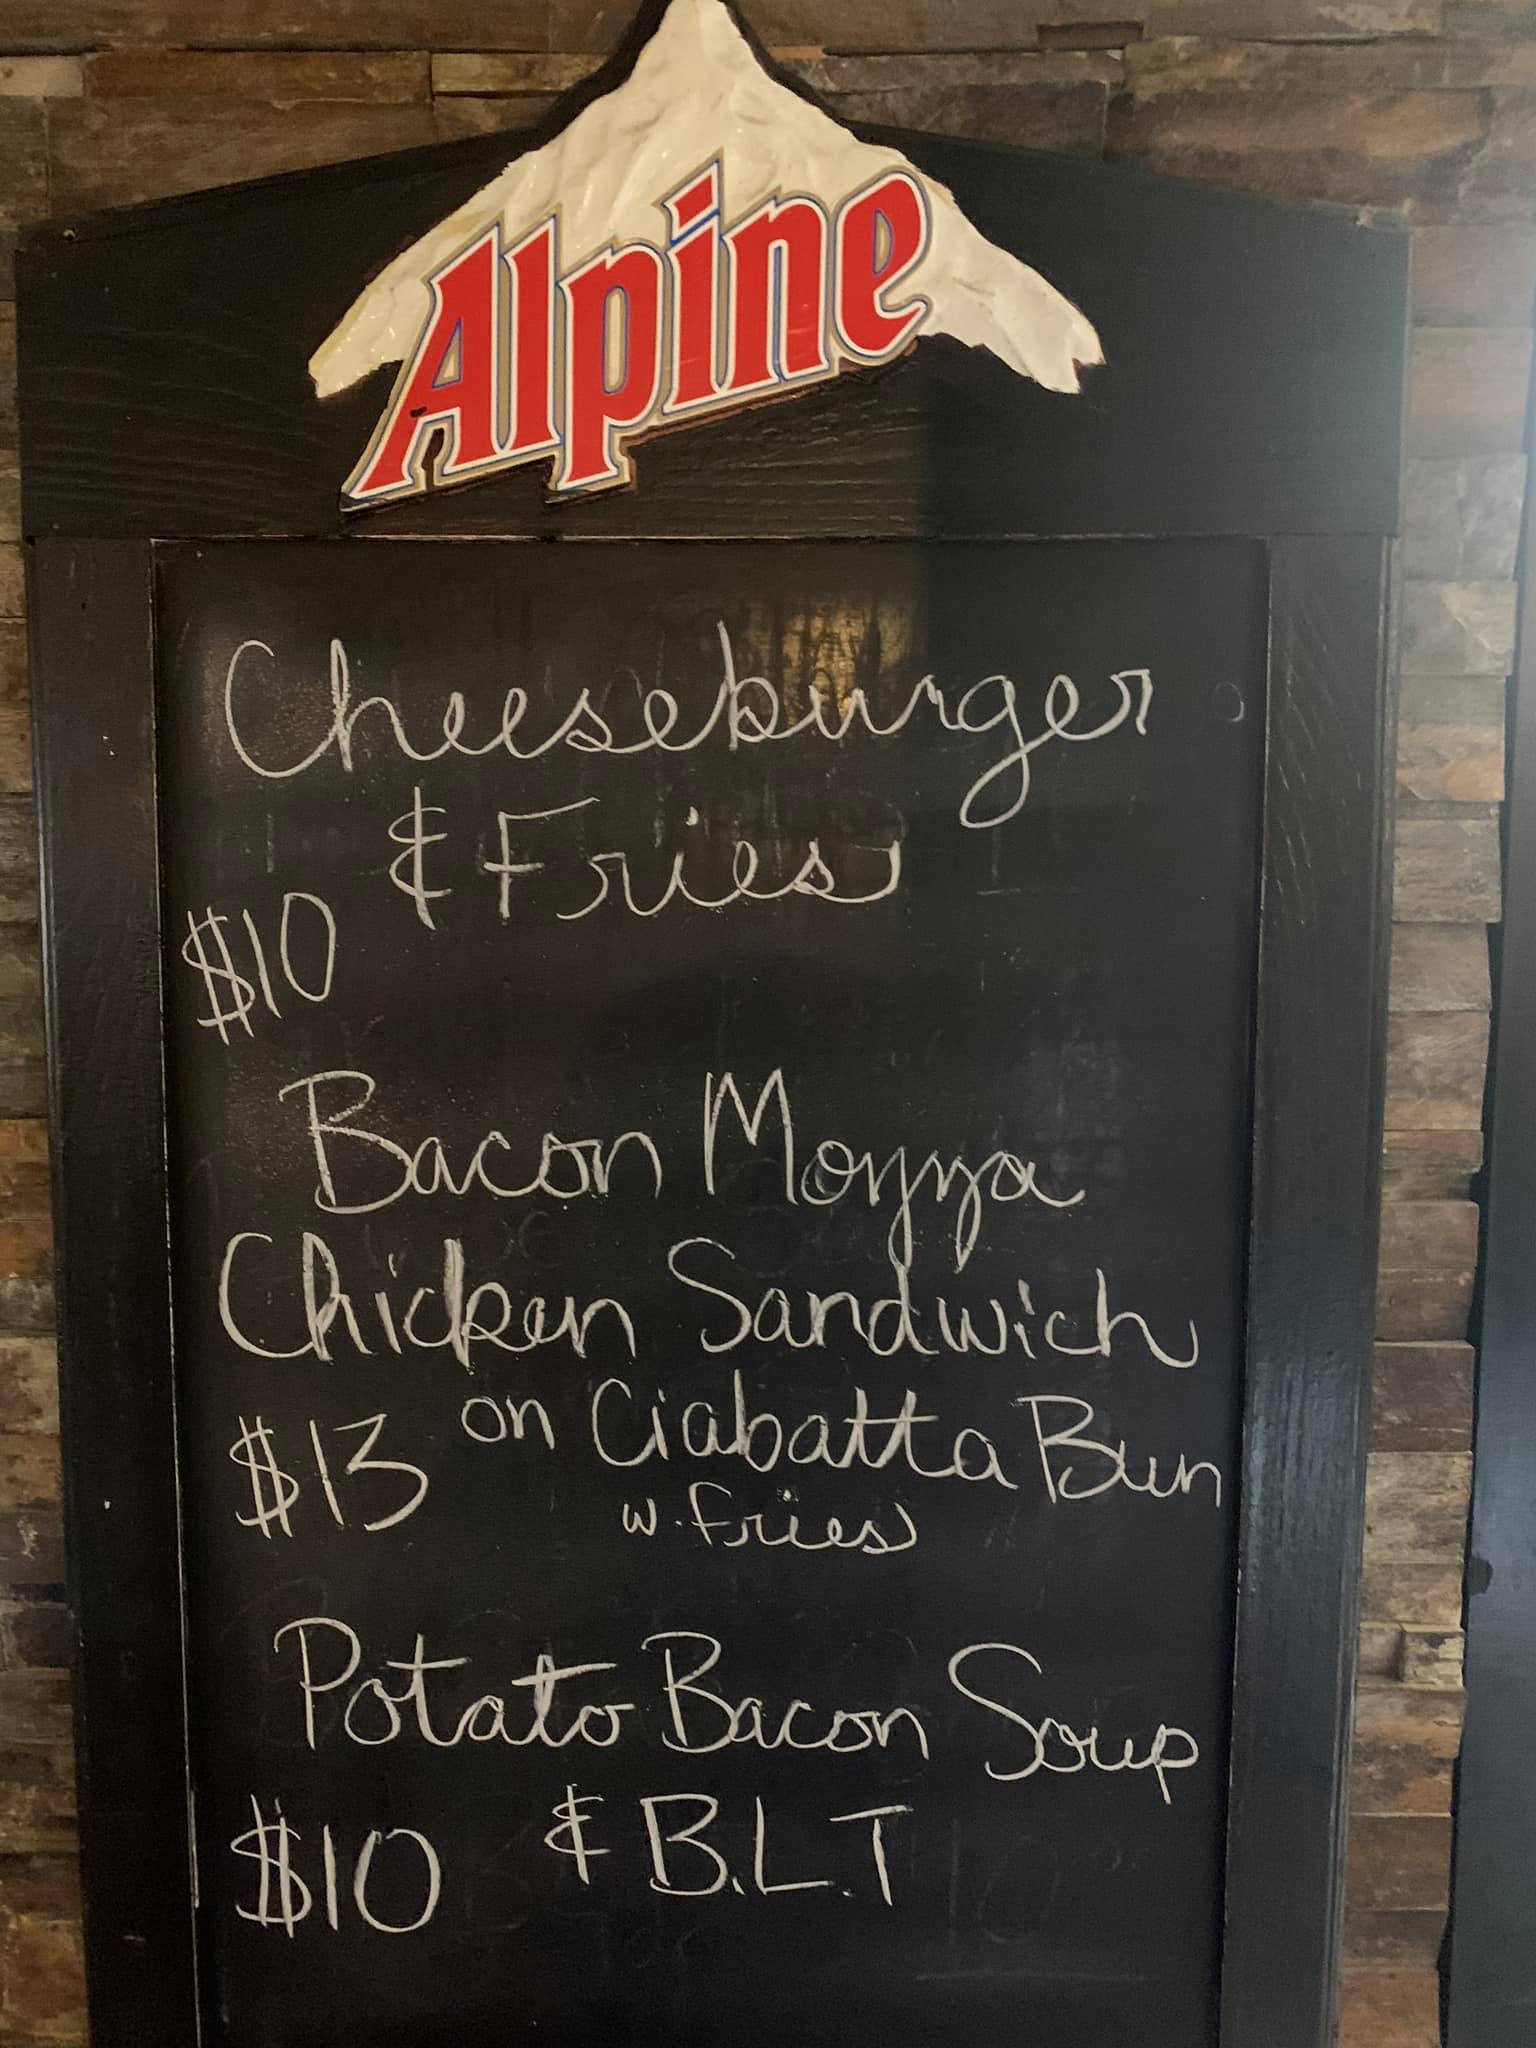 Alpine
Cheeseburger
& Fries
$10
Bacon Mozza
Chicken Sandwich
on Ciabatta Bun
$13
w. fries
Potato Bacon Soup
& B.L.T
$10